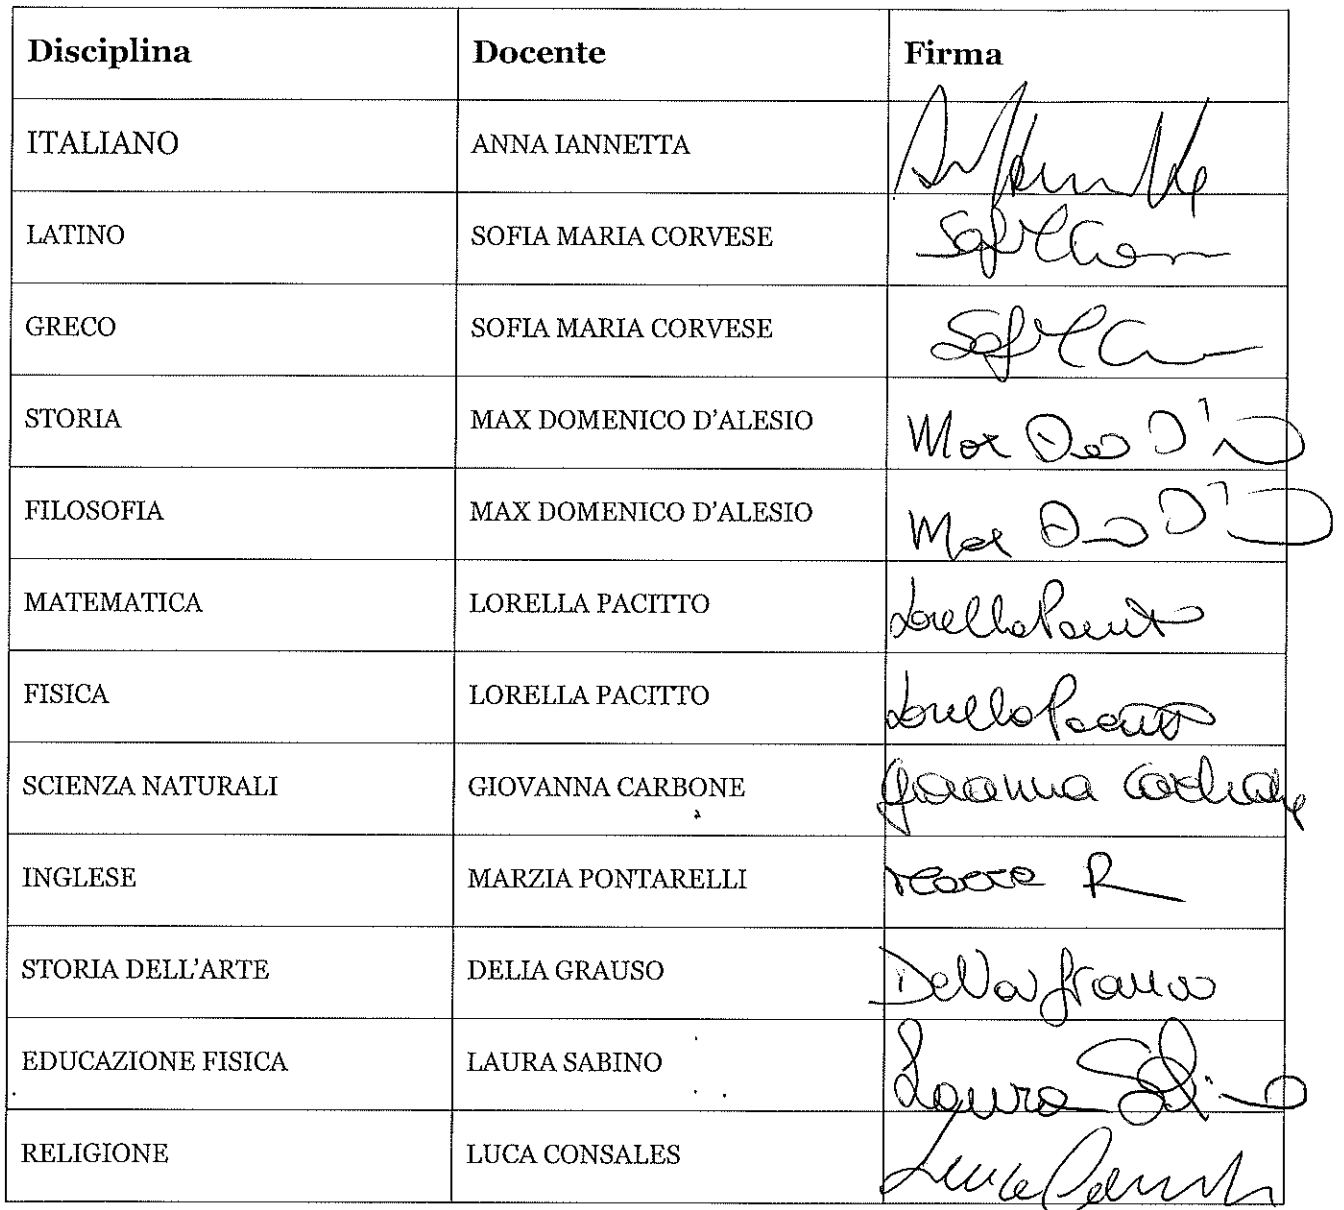 Disciplina Docente Firma
ITALIANO ANNA IANNETTA
LATINO SOFIA MARIA CORVESE
GRECO SOFIA MARIA CORVESE
STORIA MAX DOMENICO D'ALESIO Max D'
FILOSOFIA MAX DOMENICO D'ALESIO Max D'
MATEMATICA LORELLA PACITTO Lorella Pacitto
FISICA LORELLA PACITTO Lorella Pacitto
SCIENZA NATURALI GIOVANNA CARBONE Giovanna Carbone
INGLESE MARZIA PONTARELLI
STORIA DELL'ARTE DELIA GRAUSO Delia Grauso
EDUCAZIONE FISICA LAURA SABINO Laura Sabino
RELIGIONE LUCA CONSALES Luca